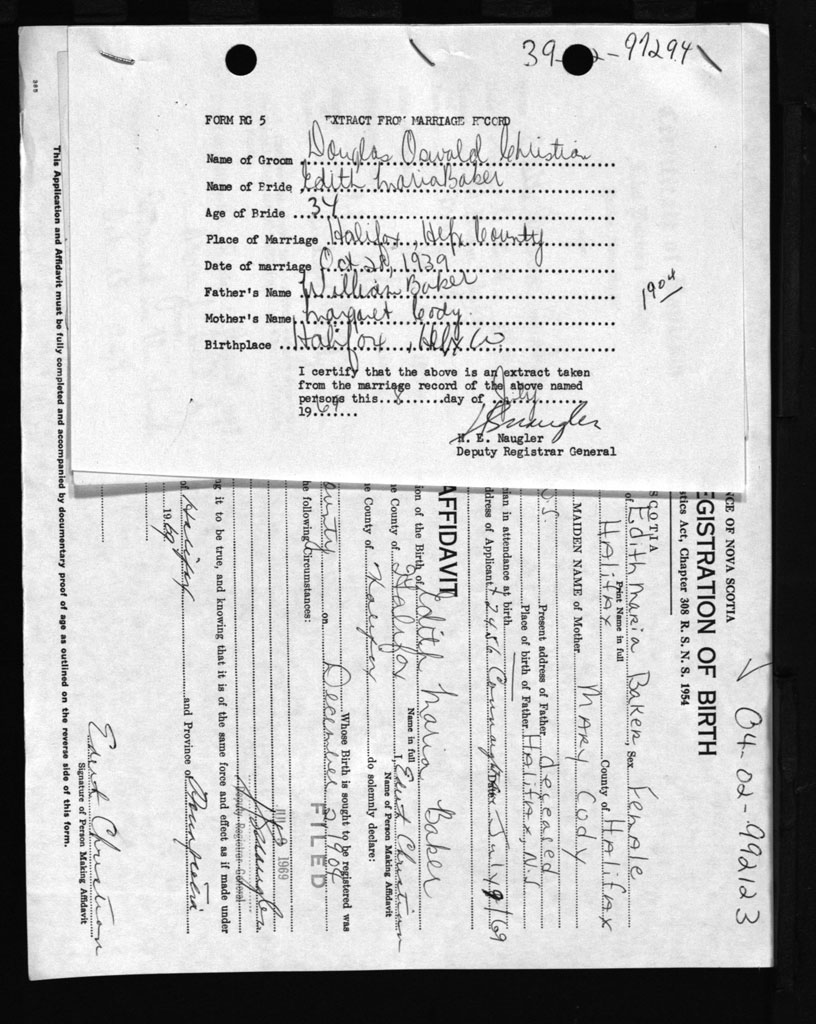 39-02-97294
FORM RG 5 EXTRACT FROM MARRIAGE RECORD
Name of Groom Douglas Oswald Christian
Name of Bride Edith Maria Baker
Age of Bride 34
Place of Marriage Halifax, Hfx County
Date of marriage Oct 28, 1939
Father's Name William Baker
Mother's Name Margaret Cody
Birthplace Halifax, Hfx Co.
1904
I certify that the above is an extract taken
from the marriage record of the above named
persons this 8 day of July
1969
H. E. Naugler
Deputy Registrar General
04-02-992123
NCE OF NOVA SCOTIA
EGISTRATION OF BIRTH
tics Act, Chapter 308 R. S. N. S. 1954
SCOTIA
of Edith Maria Baker, Sex Female
Print Name in full
Halifax County of Halifax
MAIDEN NAME of Mother Mary Cody
Present address of Father deceased
N.S. Place of birth of Father Halifax, N.S.
ian in attendance at birth
ddress of Applicant 2486 Connaught Date July 9/69
AFFIDAVIT
ion of the Birth of Edith Maria Baker
Name in full
he County of Halifax I, Edith Christian
Name of Person Making Affidavit
he County of Halifax do solemnly declare:
Whose Birth is sought to be registered was
ounty on December 2 1904
he following Circumstances:
FILED
JUL 9 1969
Deputy Registrar General
ng it to be true, and knowing that it is of the same force and effect as if made under
of Halifax and Province of
1969
Edith Christian
Signature of Person Making Affidavit
This Application and Affidavit must be fully completed and accompanied by documentary proof of age as outlined on the reverse side of this form.